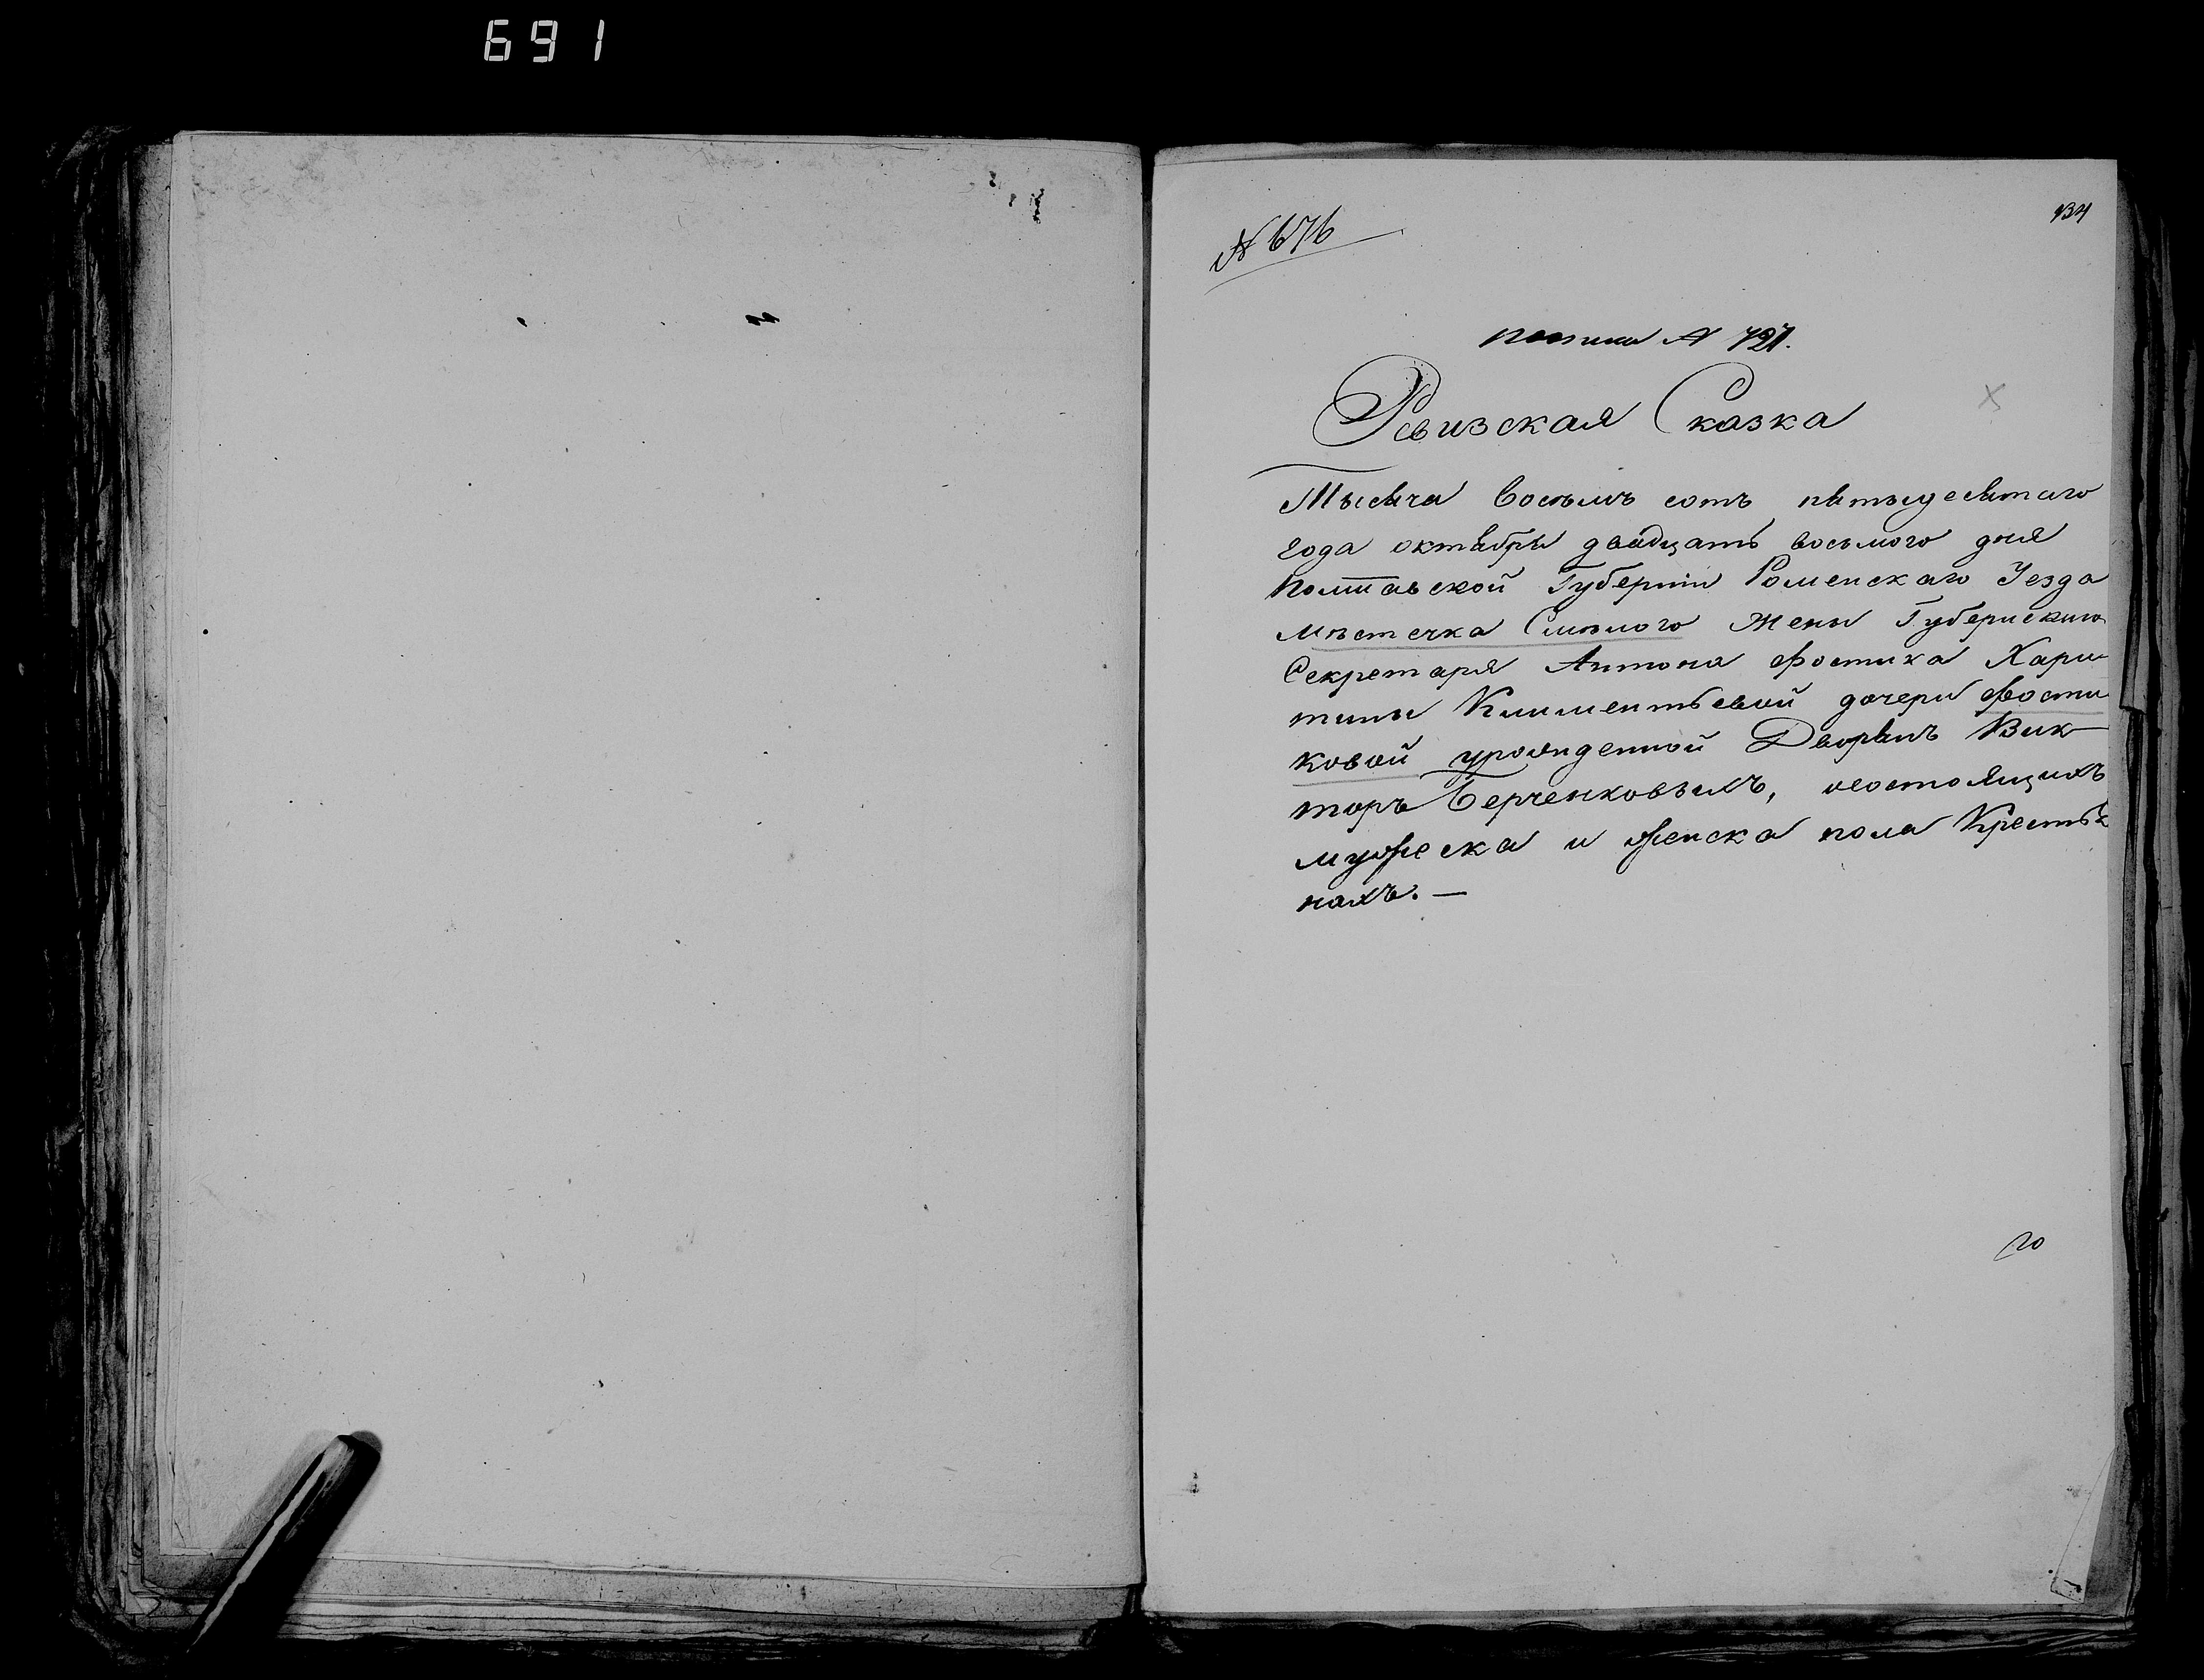 691
134
№ 676
№ 721.
Ревизская Сказка
Тысяча восемь сотъ пятьдесятаго
года октября двадцать восьмого дня
Полтавской Губерніи Роменскаго Уезда
мѣстечка Смѣлого Жены Губернскаго
Секретаря Антона Фостика Хари-
тины Климентьевой дочери Фости-
ковой урожденной Дворянъ Вик-
торъ Берченковыхъ, о состоящихъ
мужеска и женска пола Крестья
нахъ. —